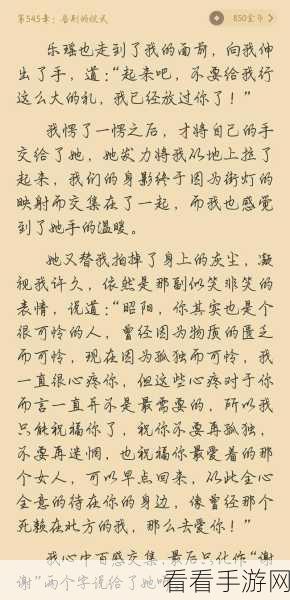 第545章：告别的仪式
850金币 >
乐瑶也走到了我的面前，向我伸
出了手，道：“起来吧，不要给我行
这么大的礼，我已经放过你了！”
我愣了一愣之后，才将自己的手
交给了她，她发力将我从地上拉了
起来，我们的身影终于因为街灯的
映射而交集在了一起，而我也感觉
到了她手的温暖。
她又替我拍掉了身上的灰尘，凝
视我许久，依然是那副似笑非笑的
表情，说道：“昭阳，你其实也是个
很可怜的人，曾经因为物质的匮乏
而可怜，现在因为孤独而可怜，我
一直很心疼你，但这些心疼对于你
而言一直并不是最需要的，所以我
只能祝福你了，祝你不要再孤独，
不要再迷惘，也祝福你最爱着的那
个女人，可以早点回来，以此全心
全意的待在你的身边，像曾经那个
死赖在北方的我，那么去爱你！”
我心中百感交集，最后只化作“谢
谢”两个字说给了她听
看看手游网
www.kkssyy.com